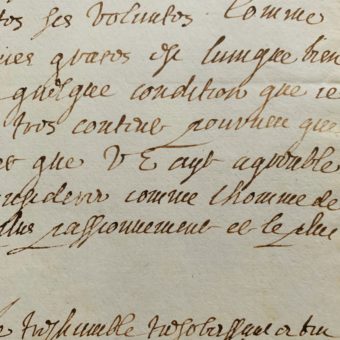 ses volontes comme
graces et lunique bien
quelque condition que ie
tres content pourveu que
et que V E ayt agreable
comme lhomme de
plus passionnement et le plus
treshumble tresobeissant